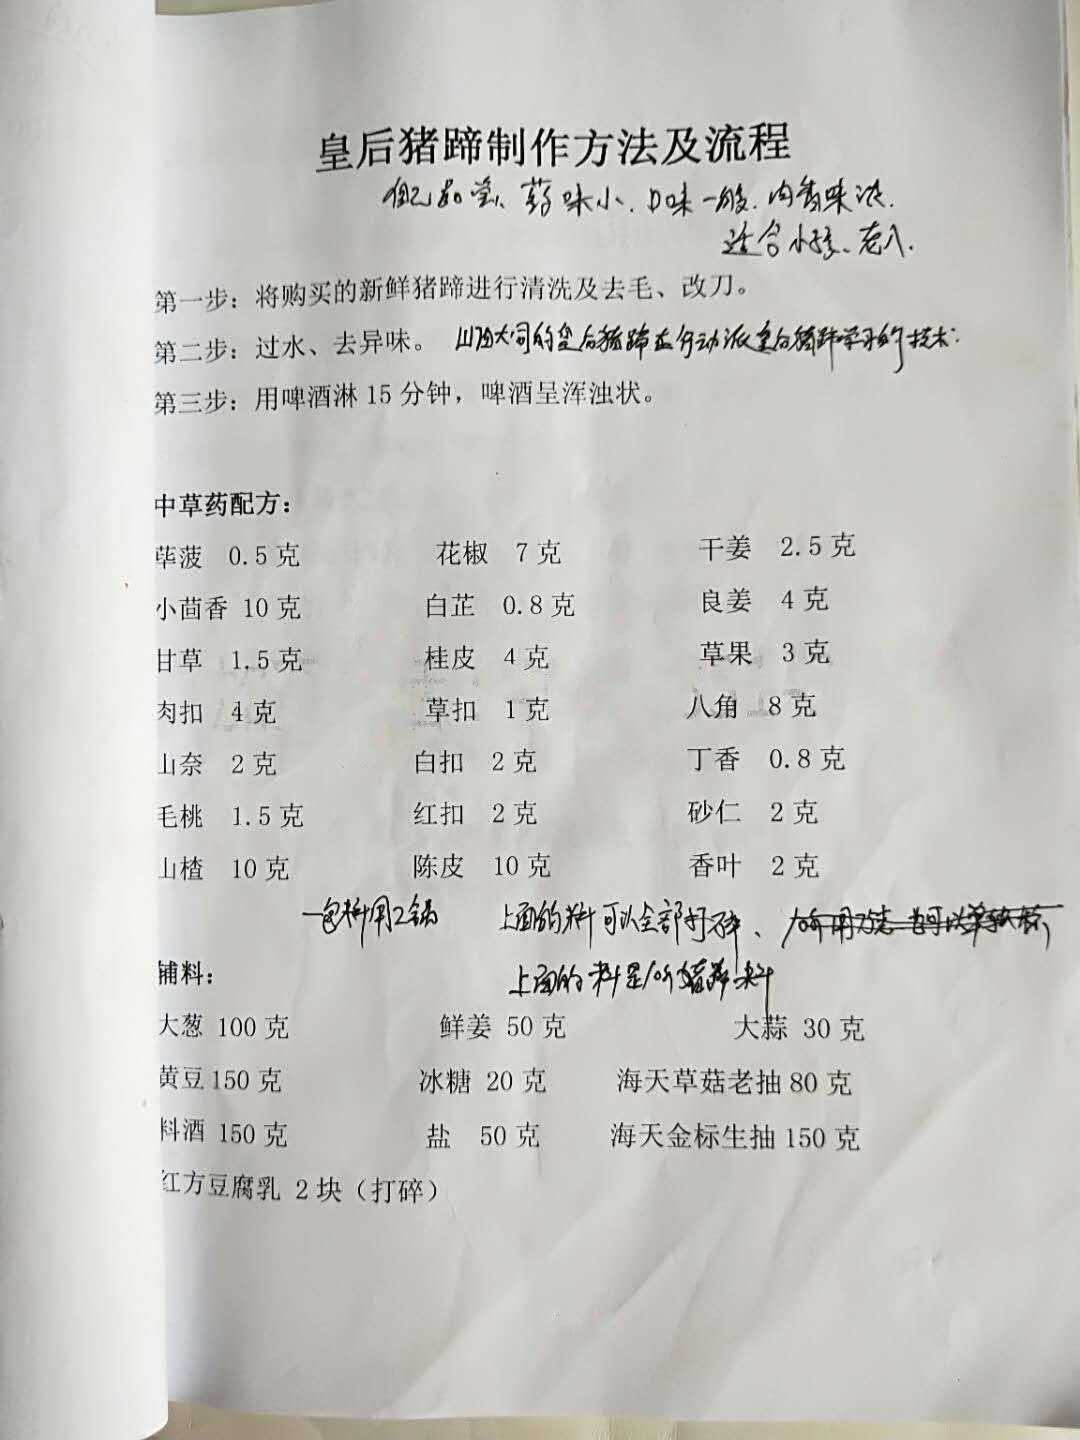 皇后猪蹄制作方法及流程
药味小、口味一般、肉香味浓.
适合小孩、老人.
第一步：将购买的新鲜猪蹄进行清洗及去毛、改刀。
第二步：过水、去异味。 山西大同的皇后猪蹄在行动派皇后猪蹄学习的技术.
第三步：用啤酒淋 15 分钟，啤酒呈浑浊状。
中草药配方：
荜菠 0.5 克 花椒 7 克 干姜 2.5 克
小茴香 10 克 白芷 0.8 克 良姜 4 克
甘草 1.5 克 桂皮 4 克 草果 3 克
肉扣 4 克 草扣 1 克 八角 8 克
山奈 2 克 白扣 2 克 丁香 0.8 克
毛桃 1.5 克 红扣 2 克 砂仁 2 克
山楂 10 克 陈皮 10 克 香叶 2 克
一包料用2锅 上面的料可以全部打碎、
辅料：
上面的料是10斤猪蹄料
大葱 100 克 鲜姜 50 克 大蒜 30 克
黄豆 150 克 冰糖 20 克 海天草菇老抽 80 克
料酒 150 克 盐 50 克 海天金标生抽 150 克
红方豆腐乳 2 块（打碎）